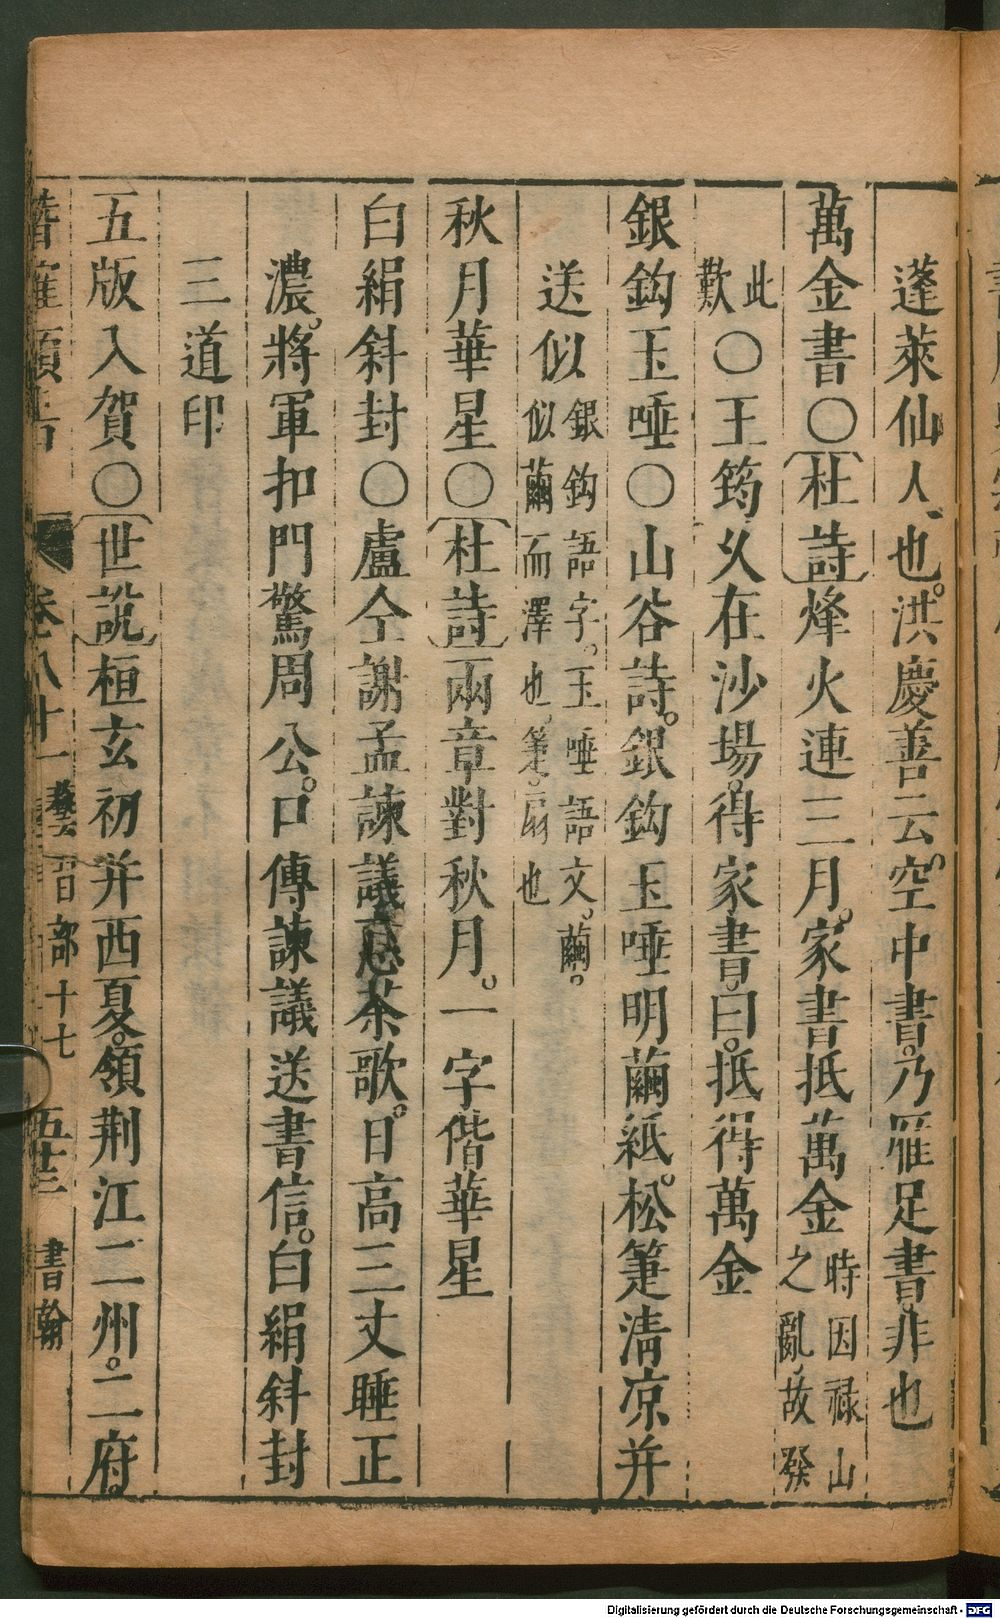 蓬萊仙人也。洪慶善云。空中書。乃雁足書。非也
萬金書〇杜詩烽火連三月。家書抵萬金時因祿山之亂。故發
此歎〇王筠乆在沙場。得家書。曰。抵得萬金
銀鈎玉唾〇山谷詩。銀鈎玉唾明繭紙。松箑淸凉并
送似銀鈎語字。玉唾語文。繭。似繭而澤也。箑。扇也
秋月華星〇杜詩兩章對秋月。一字偕華星
白絹斜封〇盧仝謝孟諫議惠茶歌。日高三丈睡正
濃。將軍扣門驚周公。口傳諫議送書信。白絹斜封
三道印
五版入賀〇世說桓玄初并西夏。領荆江二州。二府。
卷八十一 藝習部十七 五十三 書翰
Digitalisierung gefördert durch die Deutsche Forschungsgemeinschaft - DFG